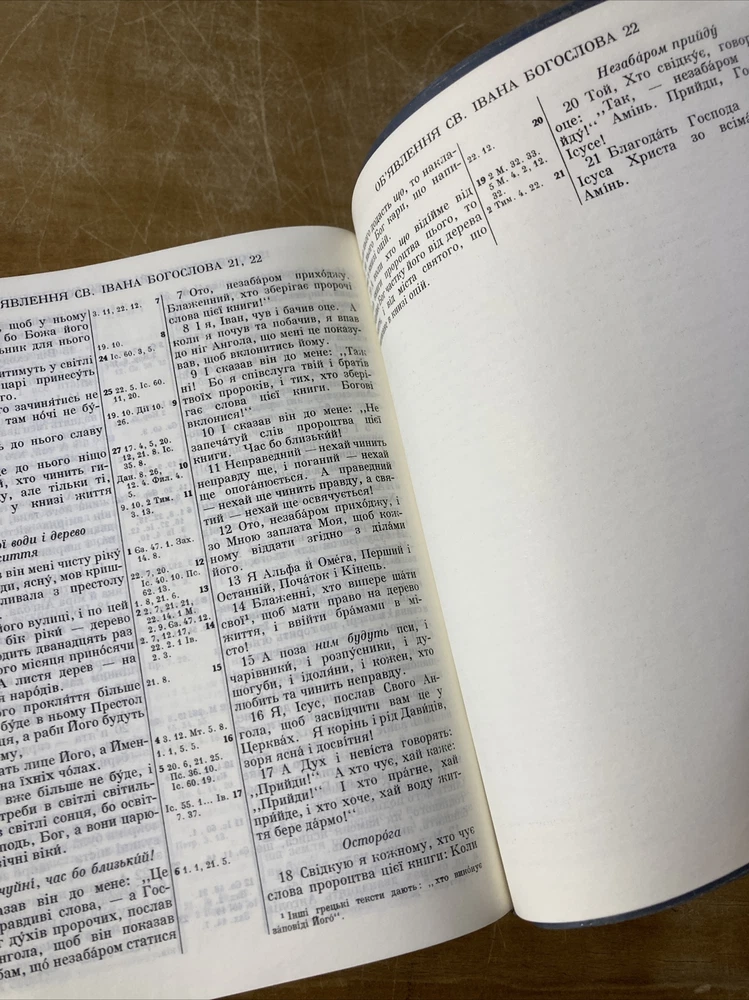 ЯВЛЕННЯ СВ. ІВАНА БОГОСЛОВА 21, 22
щоб у ньому
бо Божа його
для нього
світлі
царі принесуть
зачинятись не
там но́чі не бу-
до нього славу
до нього ніщо
хто чинить ги-
але тільки ті,
у книзі життя
води і дерево
життя
він мені чисту ріку
ясну, мов криш-
з престолу
його вулиці, і по цей
бік ріки — дерево
дванадцять раз
місяця приносячи
А листя дерев — на
наро́дів.
прокля́ття більше
бу́де в ньому Престол
а раби Його будуть
лице Його, а Імен-
на їхніх чо́лах.
вже більше не бу́де, і
потреби в світлі світиль-
в світлі сонця, бо освіт-
Бог, а вони царю-
вічні ві́ки.
час бо близьки́й!
він до мене: ,,Це
правдиві слова, — а Гос-
ду́хів пророчих, послав
щоб він показав
що́ незабаром статися
3. 11, 22. 12.
19. 10.
24 Іс. 60. 3, 5,
25 22. 5. Іс. 60.
11, 20.
19. 10. Дії 10.
26.
27 17. 4, 5, 20.
12, 21. 8. Іс.
35. 8.
Дан. 8. 26,
12. 4. Фил. 4.
5.
9. 10. 2 Тим.
3. 13.
1 Єз. 47. 1. Зах.
14. 8.
22. 7, 20.
Іс. 40. 10. Пс.
62. 13.
1. 8, 21. 6.
2 2. 7, 21. 21,
22. 14. 1 М.
2. 9. Єз. 47. 12.
2. 7, 12. 17,
22. 2. 1 Ів.
2. 3.
21. 8.
4 3. 12. Мт. 5. 8.
1. 1, 5. 5.
5 20. 6, 21. 25.
Пс. 36. 10.
Іс. 60. 19.
Іс. 55. 1... Ів.
7. 37.
6 1. 1, 21. 5.
7 Ото, незаба́ром прихо́джу.
Блаженний, хто зберігає пророчі
слова цієї книги!“
8 І я, Іван, чув і бачив оце. А
коли я почув та побачив, я впав
до ніг Ангола, що мені це показу-
вав, щоб вклонитись йому.
9 І сказав він до мене: ,,Таж
ні! Бо я співслуга твій і братів
твоїх пророків, і тих, хто збері-
гає слова цієї книги. Богові
вклонися!“
10 І сказав він до мене: ,,Не
запечатуй слів пророцтва цієї
книги. Час бо близьки́й!
11 Неправедний — нехай чинить
неправду ще, і поганий — нехай
ще опога́нюється. А праведний
— нехай ще чинить правду, а свя-
тий — нехай ще освячується!
12 Ото, незаба́ром прихо́джу, і
зо Мною заплата Моя, щоб кож-
ному віддати згідно з діла́ми
його.
13 Я Альфа й Оме́га, Перший і
Останній, Поча́ток і Кінець.
14 Блаженні, хто випере ша́ти
свої¹, щоб мати право на дерево
життя, і ввійти бра́мами в мі-
сто!
15 А поза ним будуть пси, і
чарівники́, і розпу́сники, і ду-
шогуби, і ідоля́ни, і кожен, хто
любить та чинить неправду.
16 Я, Ісус, послав Свого Ан-
гола, щоб засвідчити вам це у
Церква́х. Я корінь і рід Дави́дів,
зоря ясна́ і досвітня!
17 А Дух і невіста говорять:
,,Прийди!“ А хто чує, хай каже:
,,Прийди!“ І хто пра́гне, хай
прийде, і хто хоче, хай воду жит-
тя бере да́рмо!“
Осторо́га
18 Свідкую я кожному, хто чує
слова пророцтва цієї книги: Коли
¹ Інші грецькі тексти дають: ,,хто вико́нує
за́повіді Його́“.
ОБ'ЯВЛЕННЯ СВ. ІВАНА БОГОСЛОВА 22
додасть що, то накла-
Бог кари, що напи-
оцій.
коли хто що відійме від
пророцтва цього, то
Бог частку його від дерева
і від міста святого, що
в книзі оцій.
22. 12.
19 2 М. 32. 33.
5 М. 4. 2, 12.
32.
2 Тим. 4. 22.
Незаба́ром прийду́
20 Той, Хто свідку́є, говор
оце: ,,Так, — незаба́ром
йду́!“ Амінь. Прийди, Го
Ісусе!
21 Благода́ть Господа
Ісуса Христа зо всіма́
Амінь.